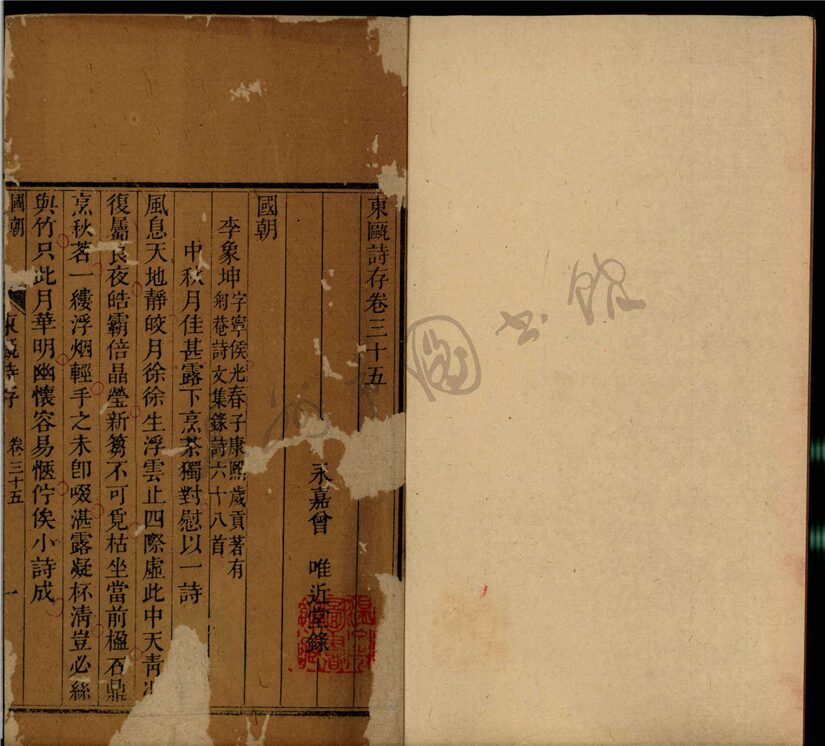 東甌詩存卷三十五
永嘉曾 唯近堂錄
國朝
李象坤字寧侯光春子康熙歲貢著有
匊菴詩文集錄詩六十八首
中秋月佳甚露下烹茶獨對慰以一詩
風息天地靜皎月徐徐生浮雲止四際虛此中天青
復屬良夜皓霸倍晶瑩新蒭不可覓枯坐當前楹石鼎
烹秋茗一縷浮烟輕手之未卽啜湛露凝杯淸豈必絲
與竹只此月華明幽懷容易愜佇俟小詩成
國朝
東甌詩存 卷三十五 一